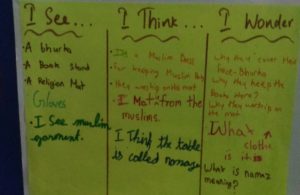 I See...
· A bhurka
· A Book Stand
· A Religion Mat
Gloves
· I See muslim
garment.
I Think...
· Its a Muslim Dress
· for keeping Muslim Holy
· they worship on the mat
· I Mat from the
muslims.
I Think the table
is called
I Wonder
Why they cover their
face-Bhurka
Why they keep the
Books there?
Why they worship on
the mat
What
clothe
is it
What is namaz
meaning?